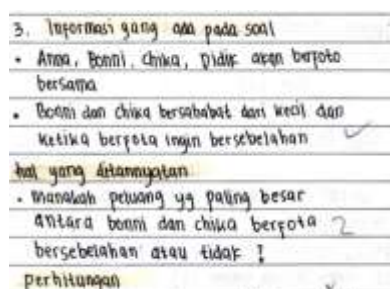 3. Informasi yang ada pada soal
• Anna, Bonni, Chika, Didik akan berfoto
bersama
• Bonni dan Chika bersahabat dari kecil dan
ketika berfoto ingin bersebelahan
hal yang ditannyatan
• manakah peluang yg paling besar
antara bonni dan chika berfota 2
bersebelahan atau tidak ?
perhitungan